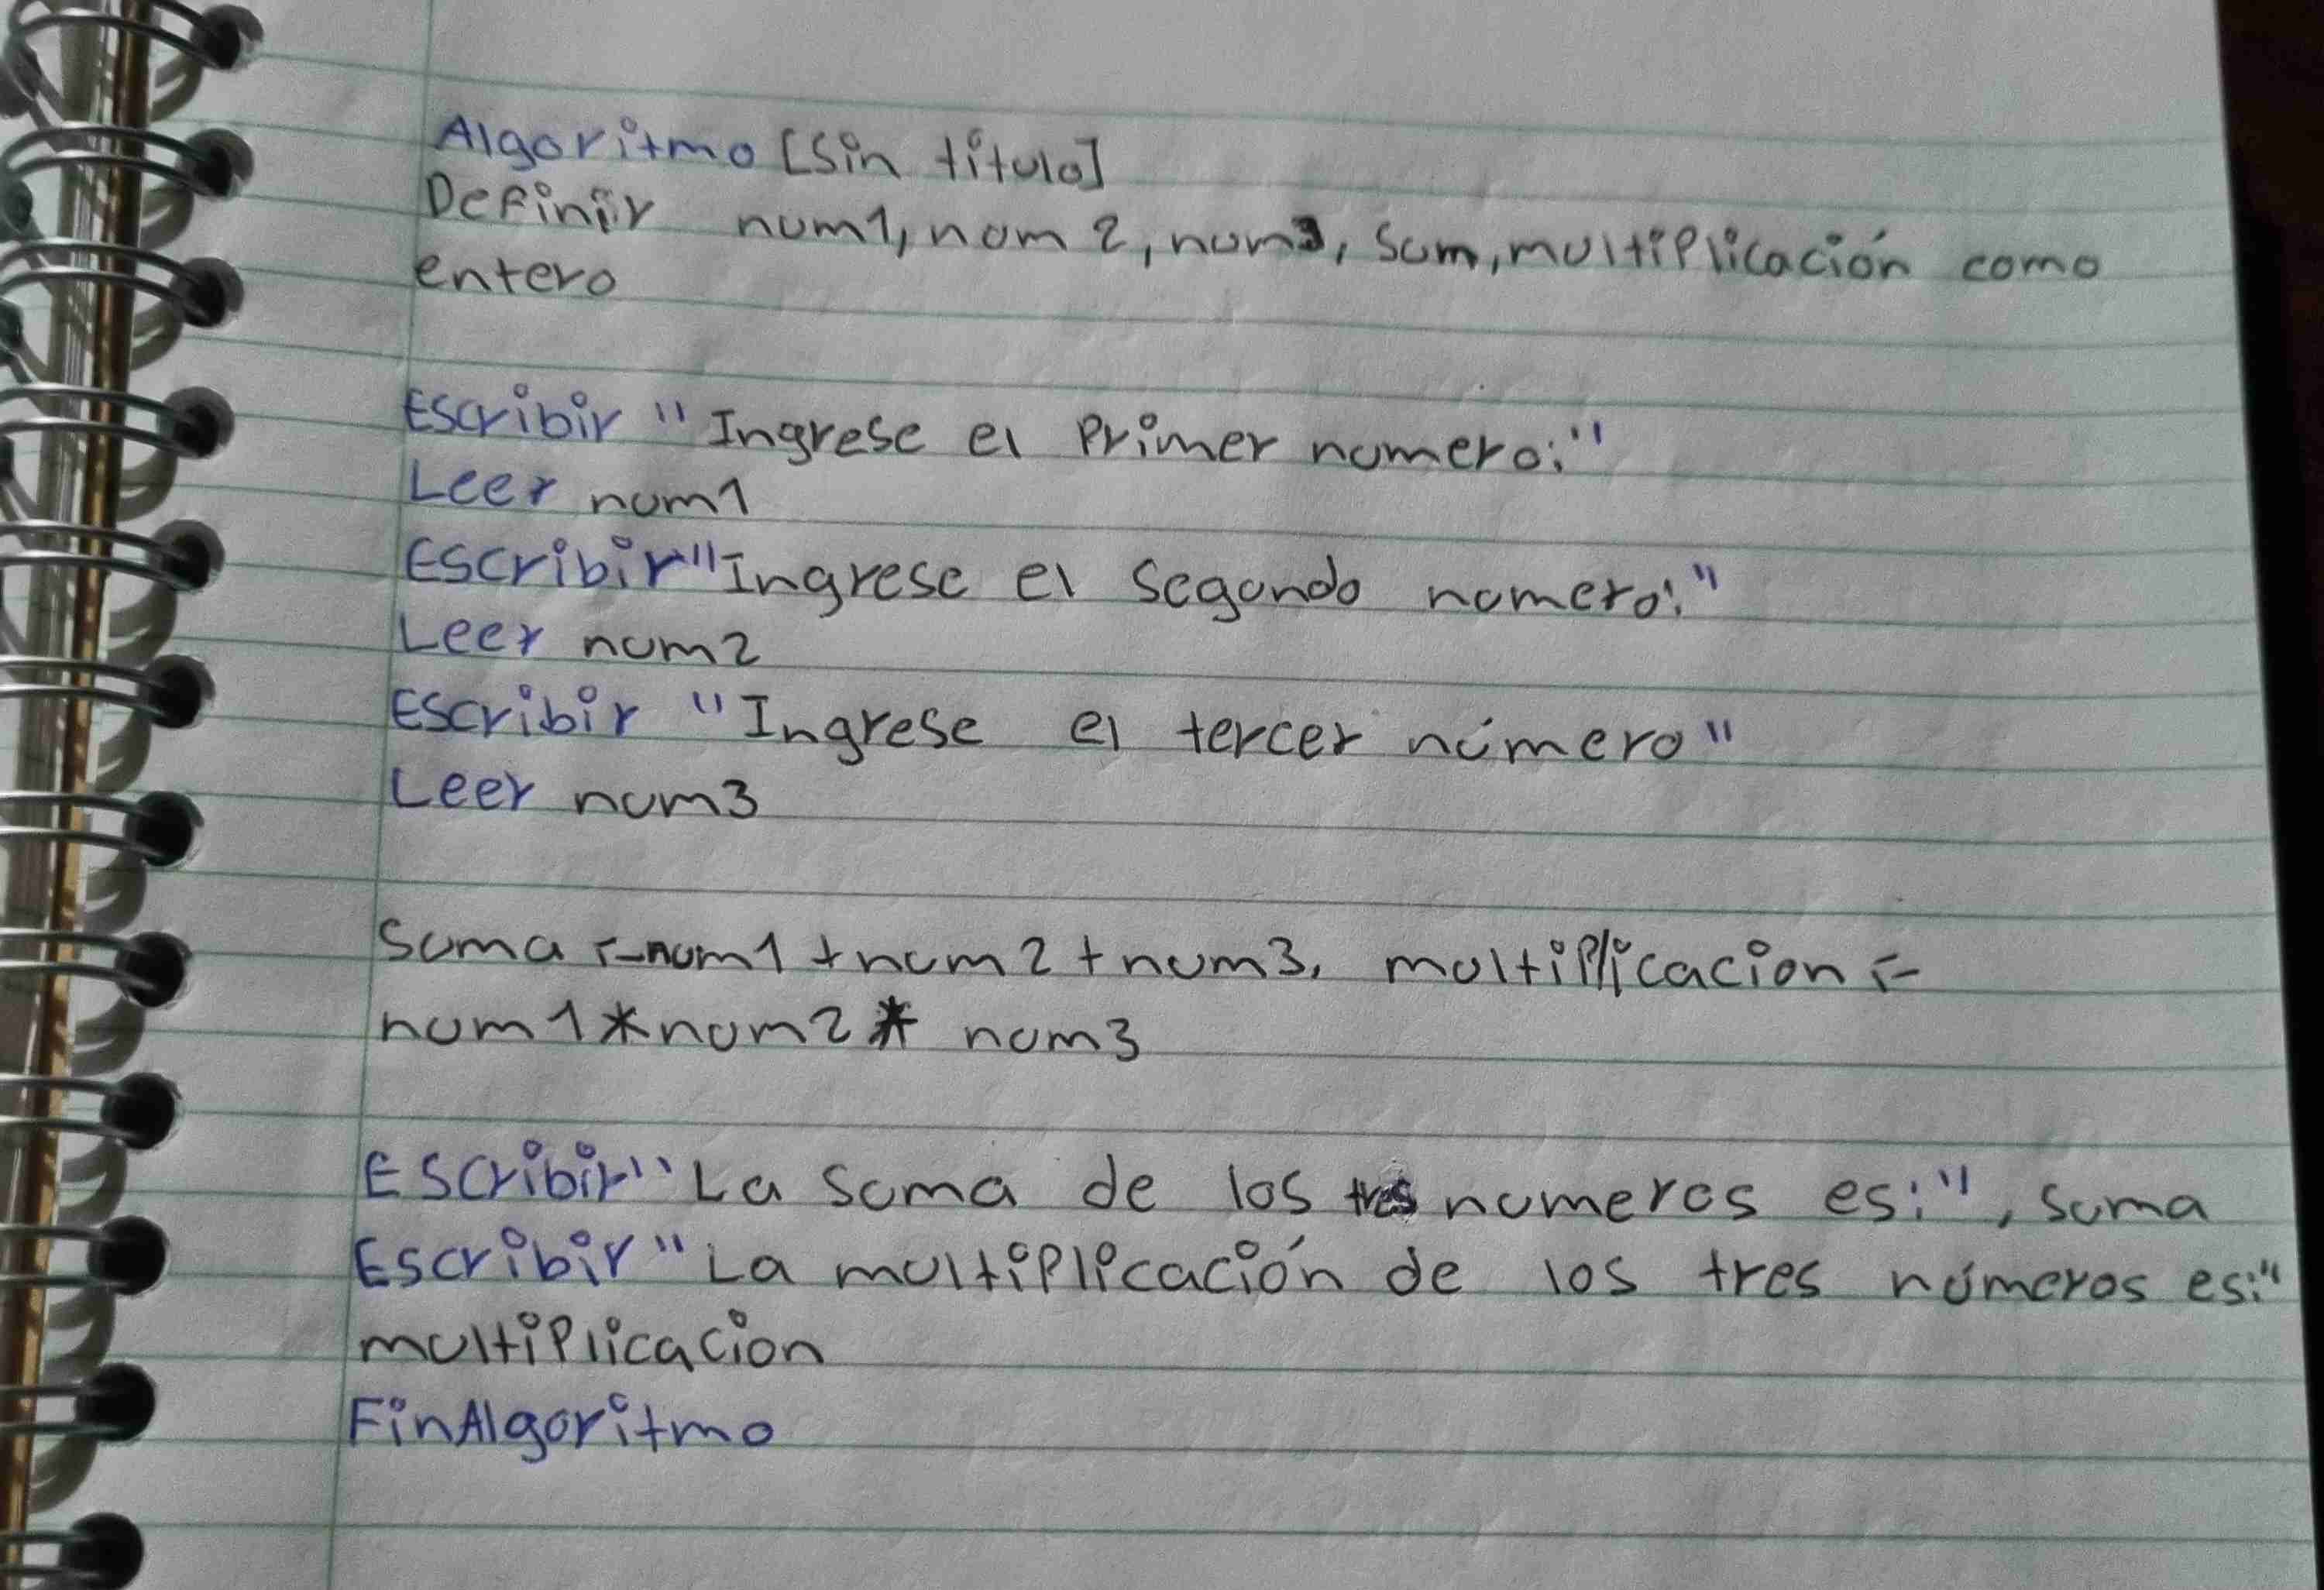 Algoritmo [Sin título]
Definir num1, num 2, num3, Sum, multiplicación como
entero
Escribir "Ingrese el Primer numero:"
Leer num1
Escribir "Ingrese el Segundo numero:"
Leer num2
Escribir "Ingrese el tercer número"
Leer num3
Suma :-num1 + num2 + num3, multiplicacion :-
num1*num2* num3
Escribir "La suma de los tres numeros es:", Suma
Escribir "La multiplicación de los tres números es:"
multiplicacion
FinAlgoritmo